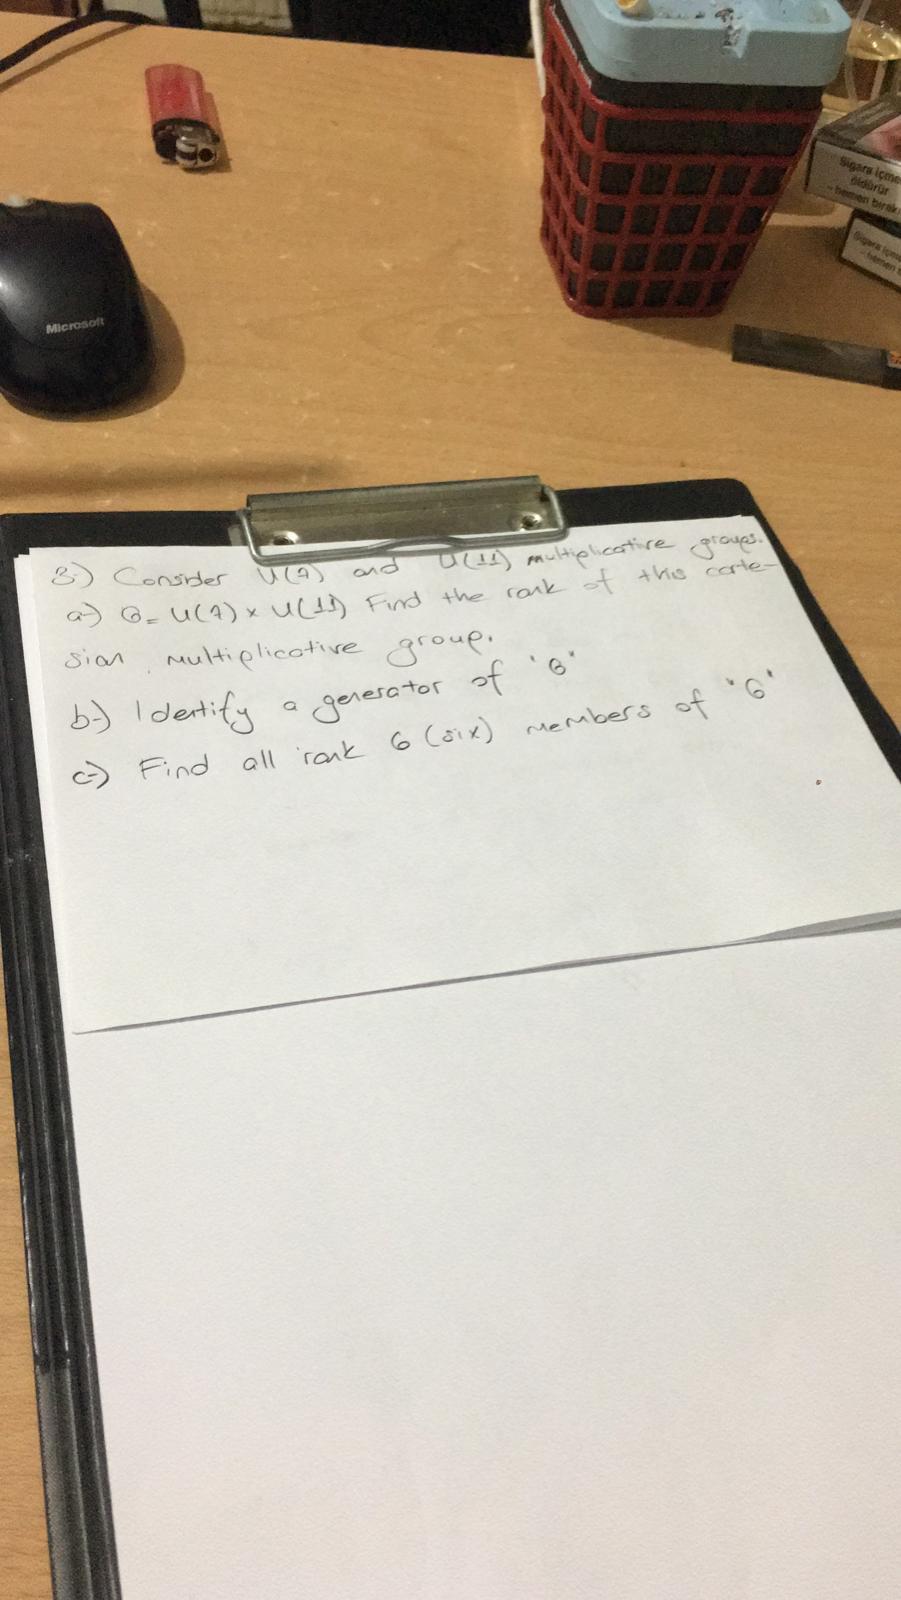 Microsoft
Sigara içme
öldürür
- hemen bırak
Sigara içme
- hemen
3-) Consider U(7) and U(11) multiplicative groups.
a-) G = U(7) x U(11) Find the rank of this carte-
sian multiplicative group.
b-) Identify a generator of "G"
c-) Find all rank 6 (six) members of "G"